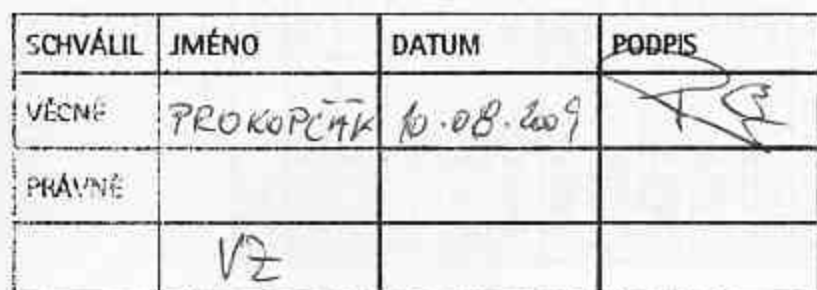 SCHVÁLIL JMÉNO DATUM PODPIS
VĚCNĚ PROKOPČÁK 10.08.2009
PRÁVNĚ
VZ